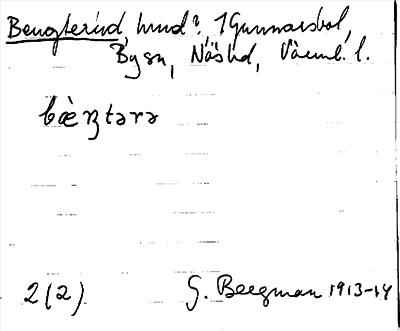 Bengterud, hmd? 1 Gunnarsbol,
Bysn, Näs hd, Värml. l.
bæ̀ŋtərə
2 (2) G. Bergman 1913-14